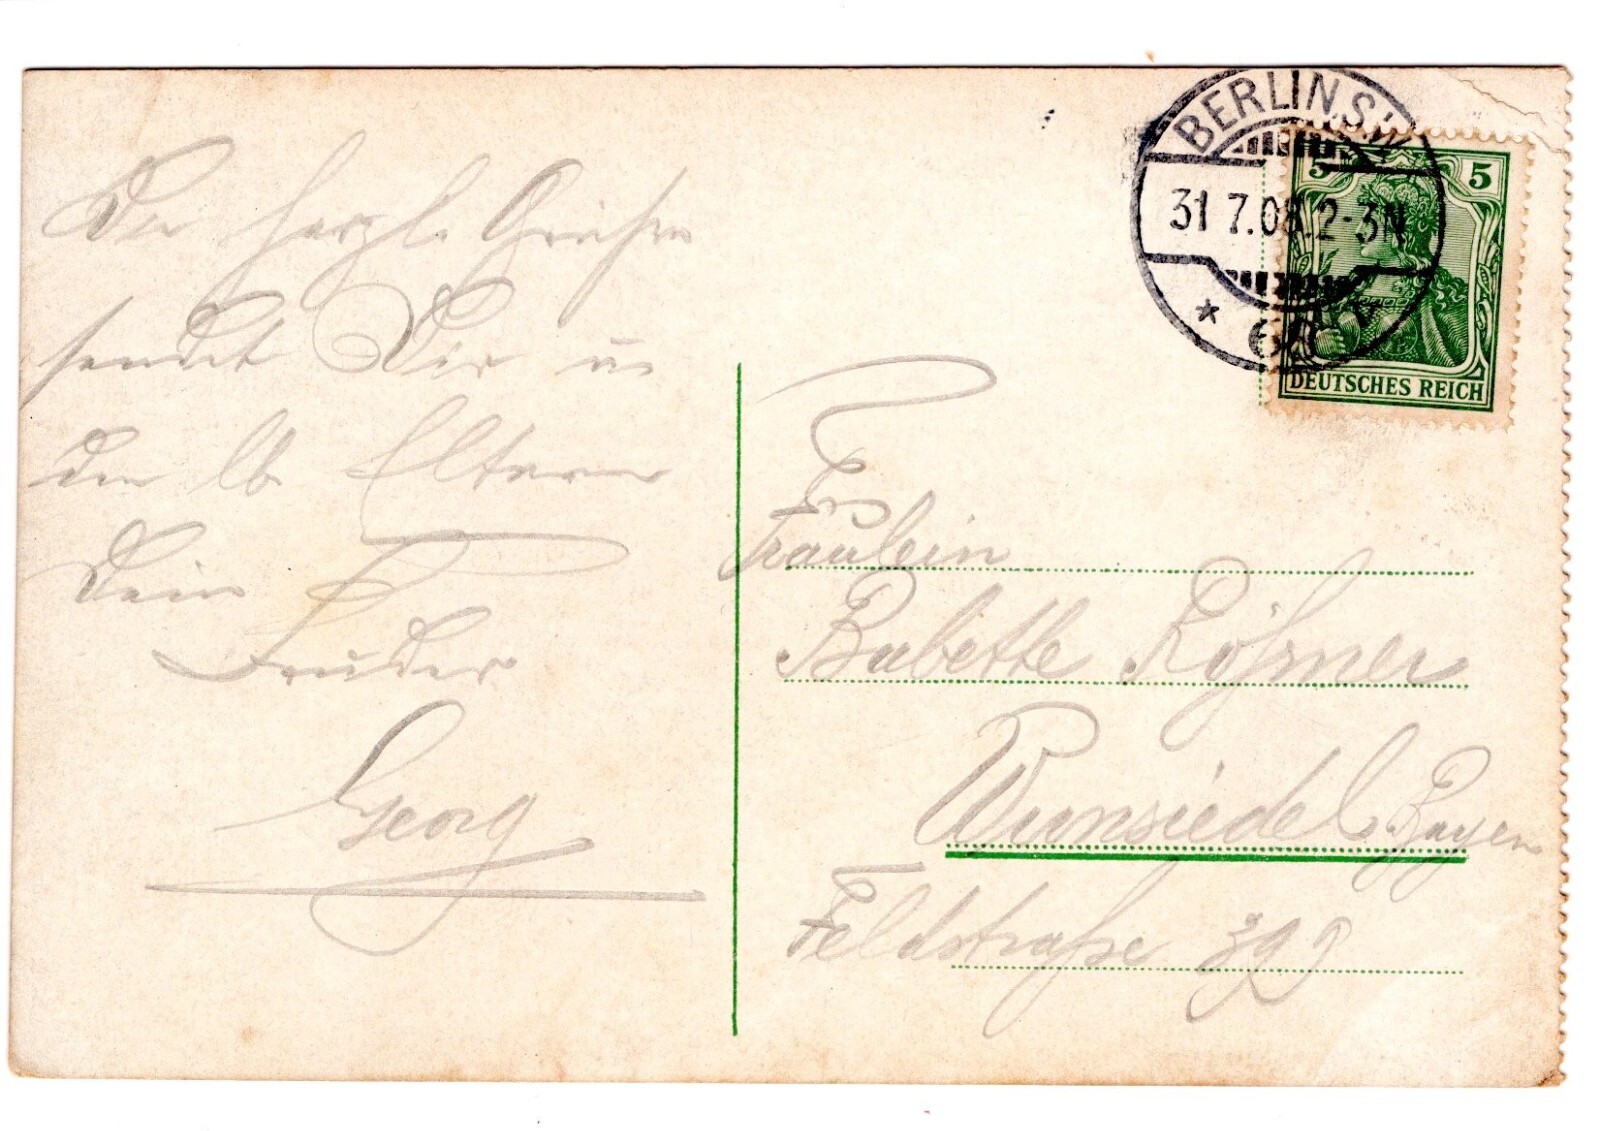 Die herzl. Grüße
sendet Dir u.
den lb. Eltern
Dein
Bruder
Georg
BERLIN.S.W.
31 7.08.2-3N
* 68
5
5
DEUTSCHES REICH
Fräulein
Babette
Wunsiedel Bayern
Feldstraße